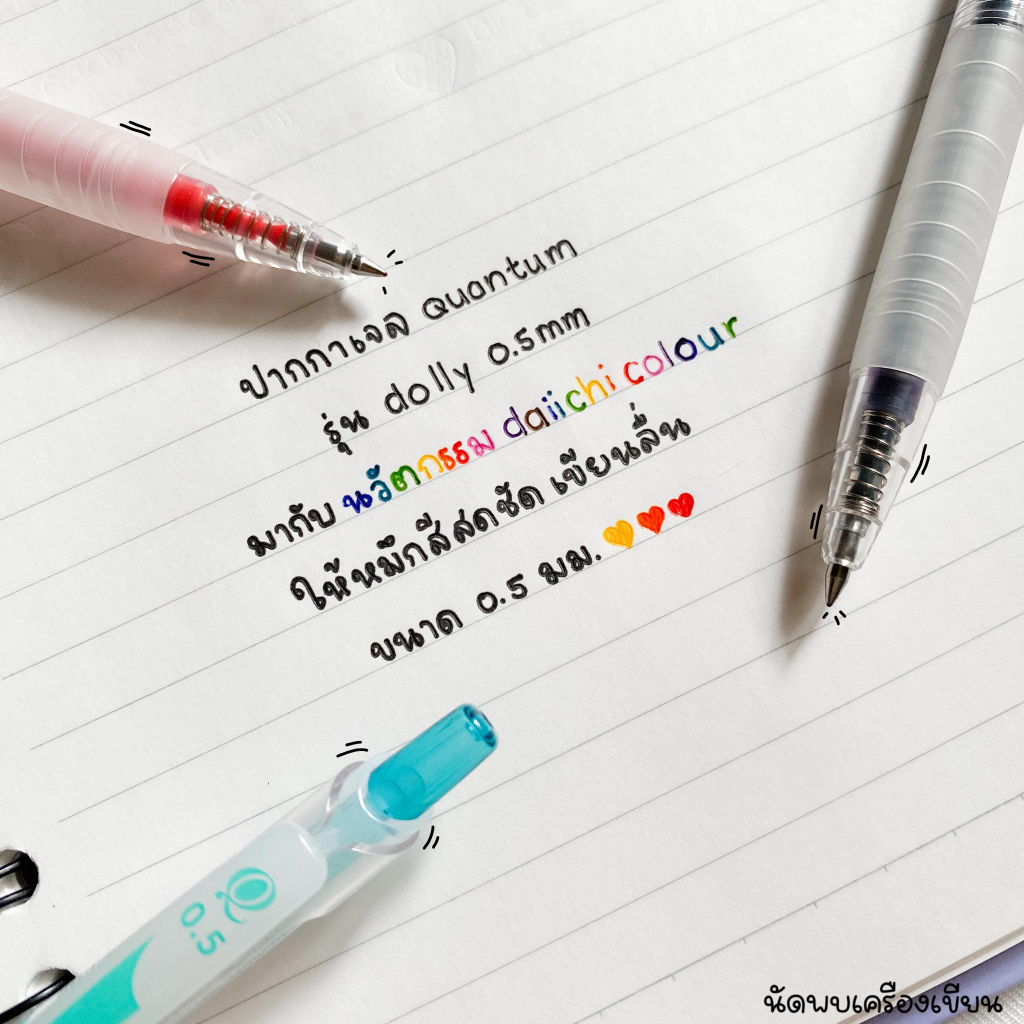 ปากกาเจล Quantum
รุ่น dolly 0.5mm
มากับ นวัตกรรม daiichi colour
ให้หมึกสีสดชัด เขียนลื่น
ขนาด 0.5 มม.
0.5
นัดพบเครื่องเขียน